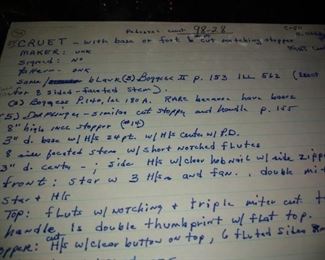 98-28
CRUET - with base or foot & cut matching stopper
MAKER: UNK
Signed: NO
PATTERN: UNK
Same blank (2) Boggess II p. 153 ILL 562 (
for 8 sided-faceted stem).
(2) Boggess P.140, ILL 180A. RARE because have bases
(5) - similar cut stoppy and handle p. 155
8" high inc stopper (#14)
3" d. base w/ H/S 24 pt. w/ H/S center w/ P.D.
8 side faceted stem w/ short notched flutes
3" d. center - ; side H/S w/ clear hobnail w/ side
front: star w 3 H/S and fan.. double
Star + H/S
Top: flutes w/ notching & triple miter cut.
handle is double thumbprint w/ flat top.
H/S w/ clear button on top, 6 fluted sides